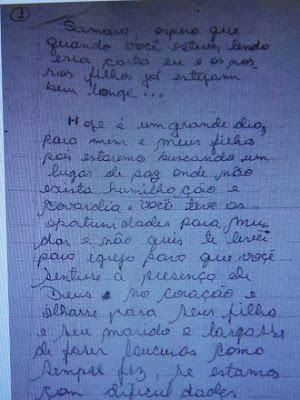 1
Samara, espero que
quando você estiver lendo
essa carta eu e os nos
sos filhos já estejam
bem longe...
Hoje é um grande dia,
para mim e meus filho
pois estaremo buscando um
lugar de paz onde não
exista humilhação e
covardia. você teve as
oportunidades para mu
dar e não quis te levei
para igreja para que você
sentisse a presença de
Deus no coração e
olhasse para seus filho
e seu marido e largasse
de fazer loucuras como
sempre fez, se estamos
com dificuldades